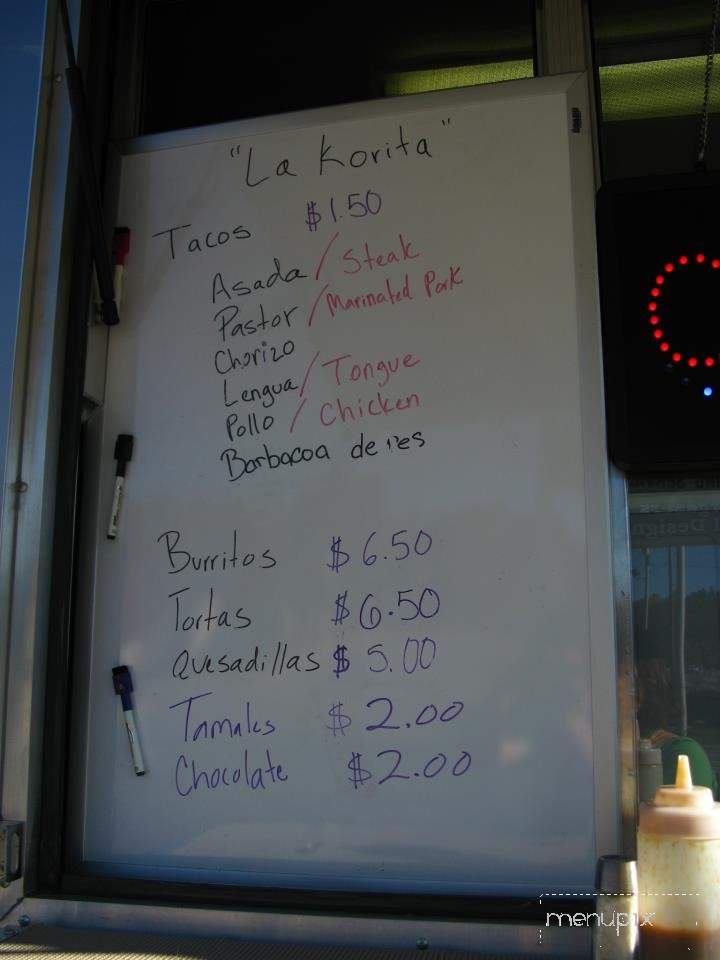 "La Korita"
Tacos $1.50
Asada / Steak
Pastor / Marinated Pork
Chorizo
Lengua / Tongue
Pollo / Chicken
Barbacoa de res
Burritos $6.50
Tortas $6.50
Quesadillas $5.00
Tamales $2.00
Chocolate $2.00
menupix